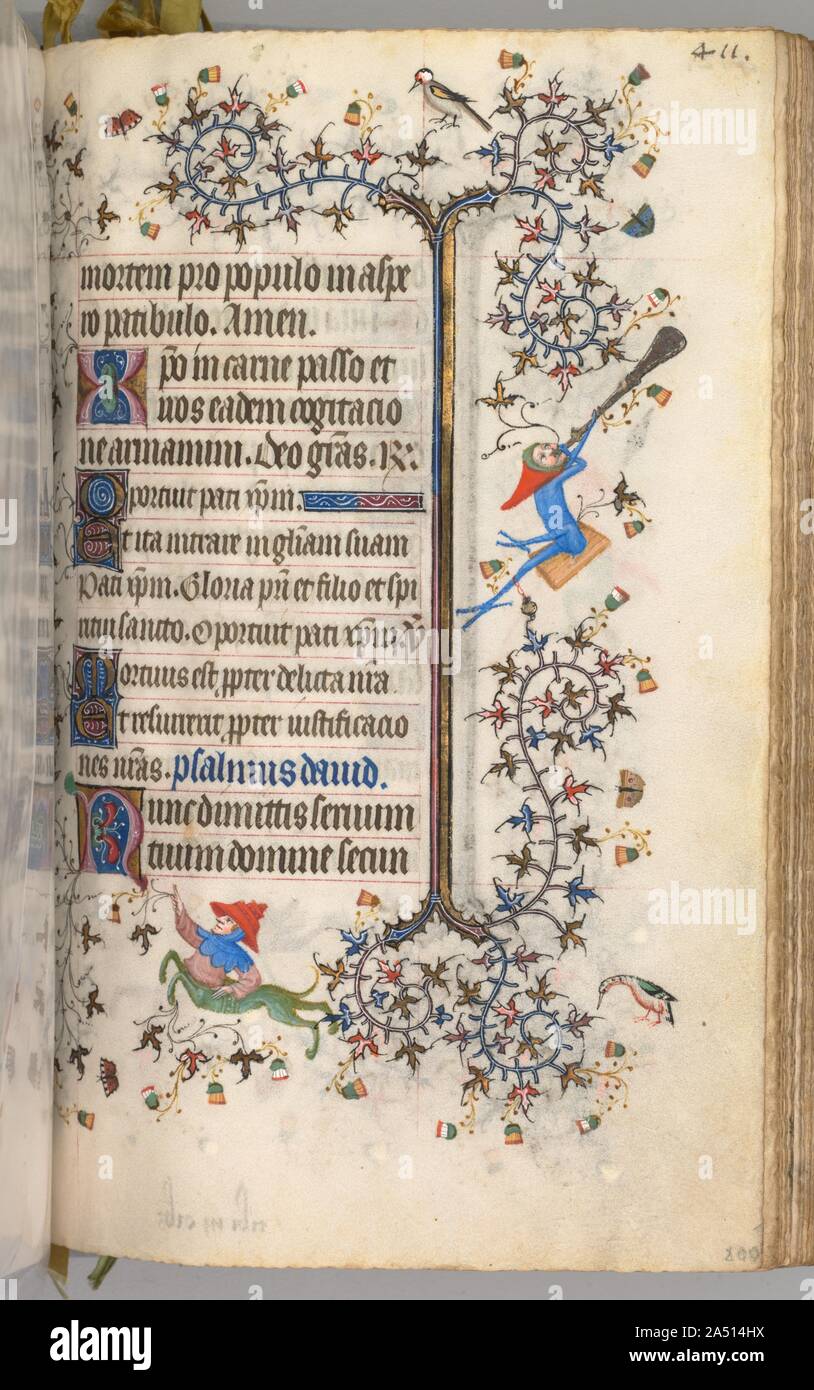 411.
mortem pro populo in aspe
ro patibulo. Amen.
Xpo in carne passo et
uos eadem cogitacio
ne armamini. Deo gras. R.
Oportuit pati xpm.
Et ita intrare in gliam suam
Pati xpm. Gloria pri et filio et spi
ritui sancto. Oportuit pati xpm.
Mortuus est ppter delicta nra
Et resurrexit ppter iustificacio
nes nras. psalmus dauid.
Nunc dimittis seruum
tuum domine secun
200
alamy
Image ID: 2A514HX
www.alamy.com